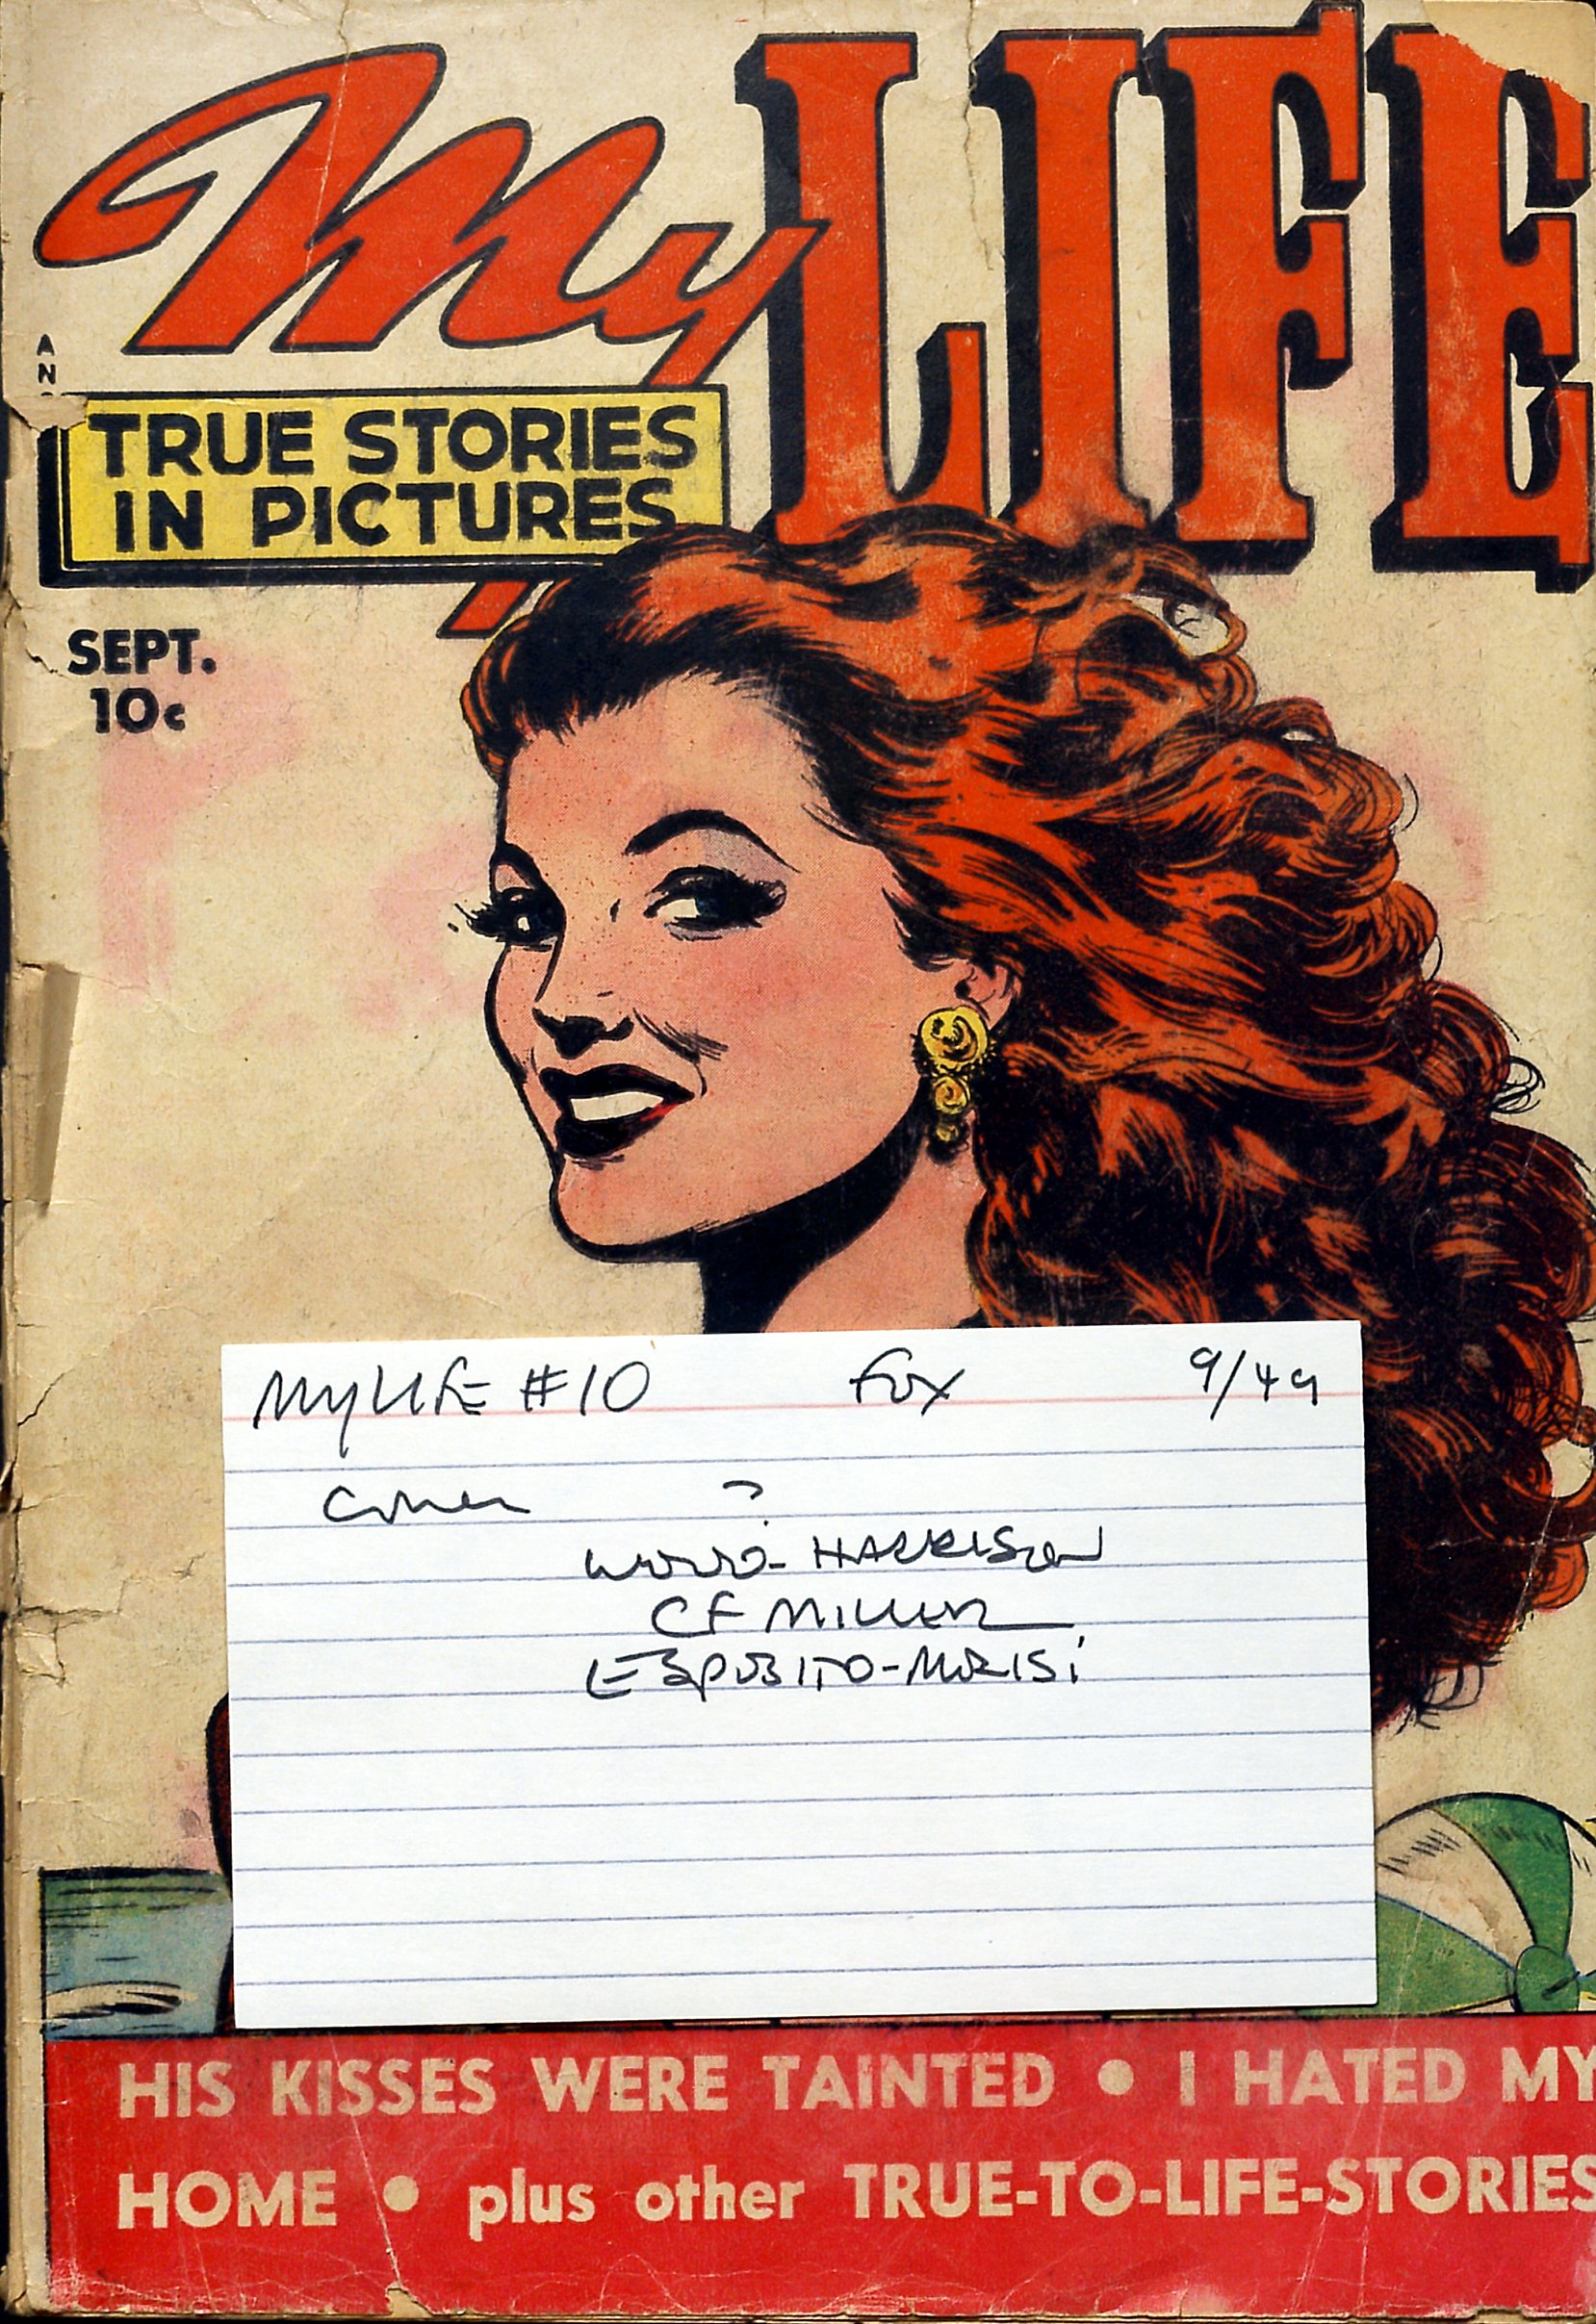 My LIFE
A
N
TRUE STORIES
IN PICTURES
SEPT.
10¢
My LIFE #10 Fox 9/49
Cover ?
WOOD-HARRISON
CF MILLER
ESPOSITO-MORISI
HIS KISSES WERE TAINTED • I HATED MY
HOME • plus other TRUE-TO-LIFE-STORIES